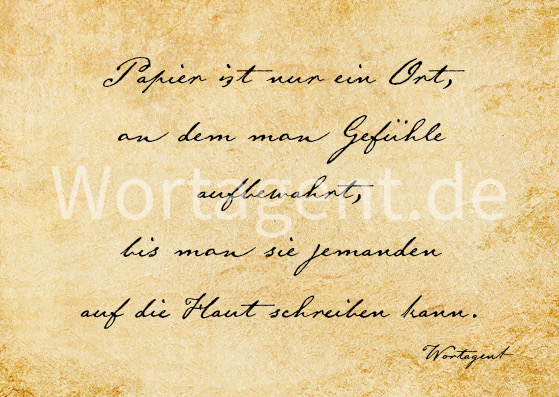 Papier ist nur ein Ort,
an dem man Gefühle
aufbewahrt,
Wortagent.de
bis man sie jemanden
auf die Haut schreiben kann.
Wortagent